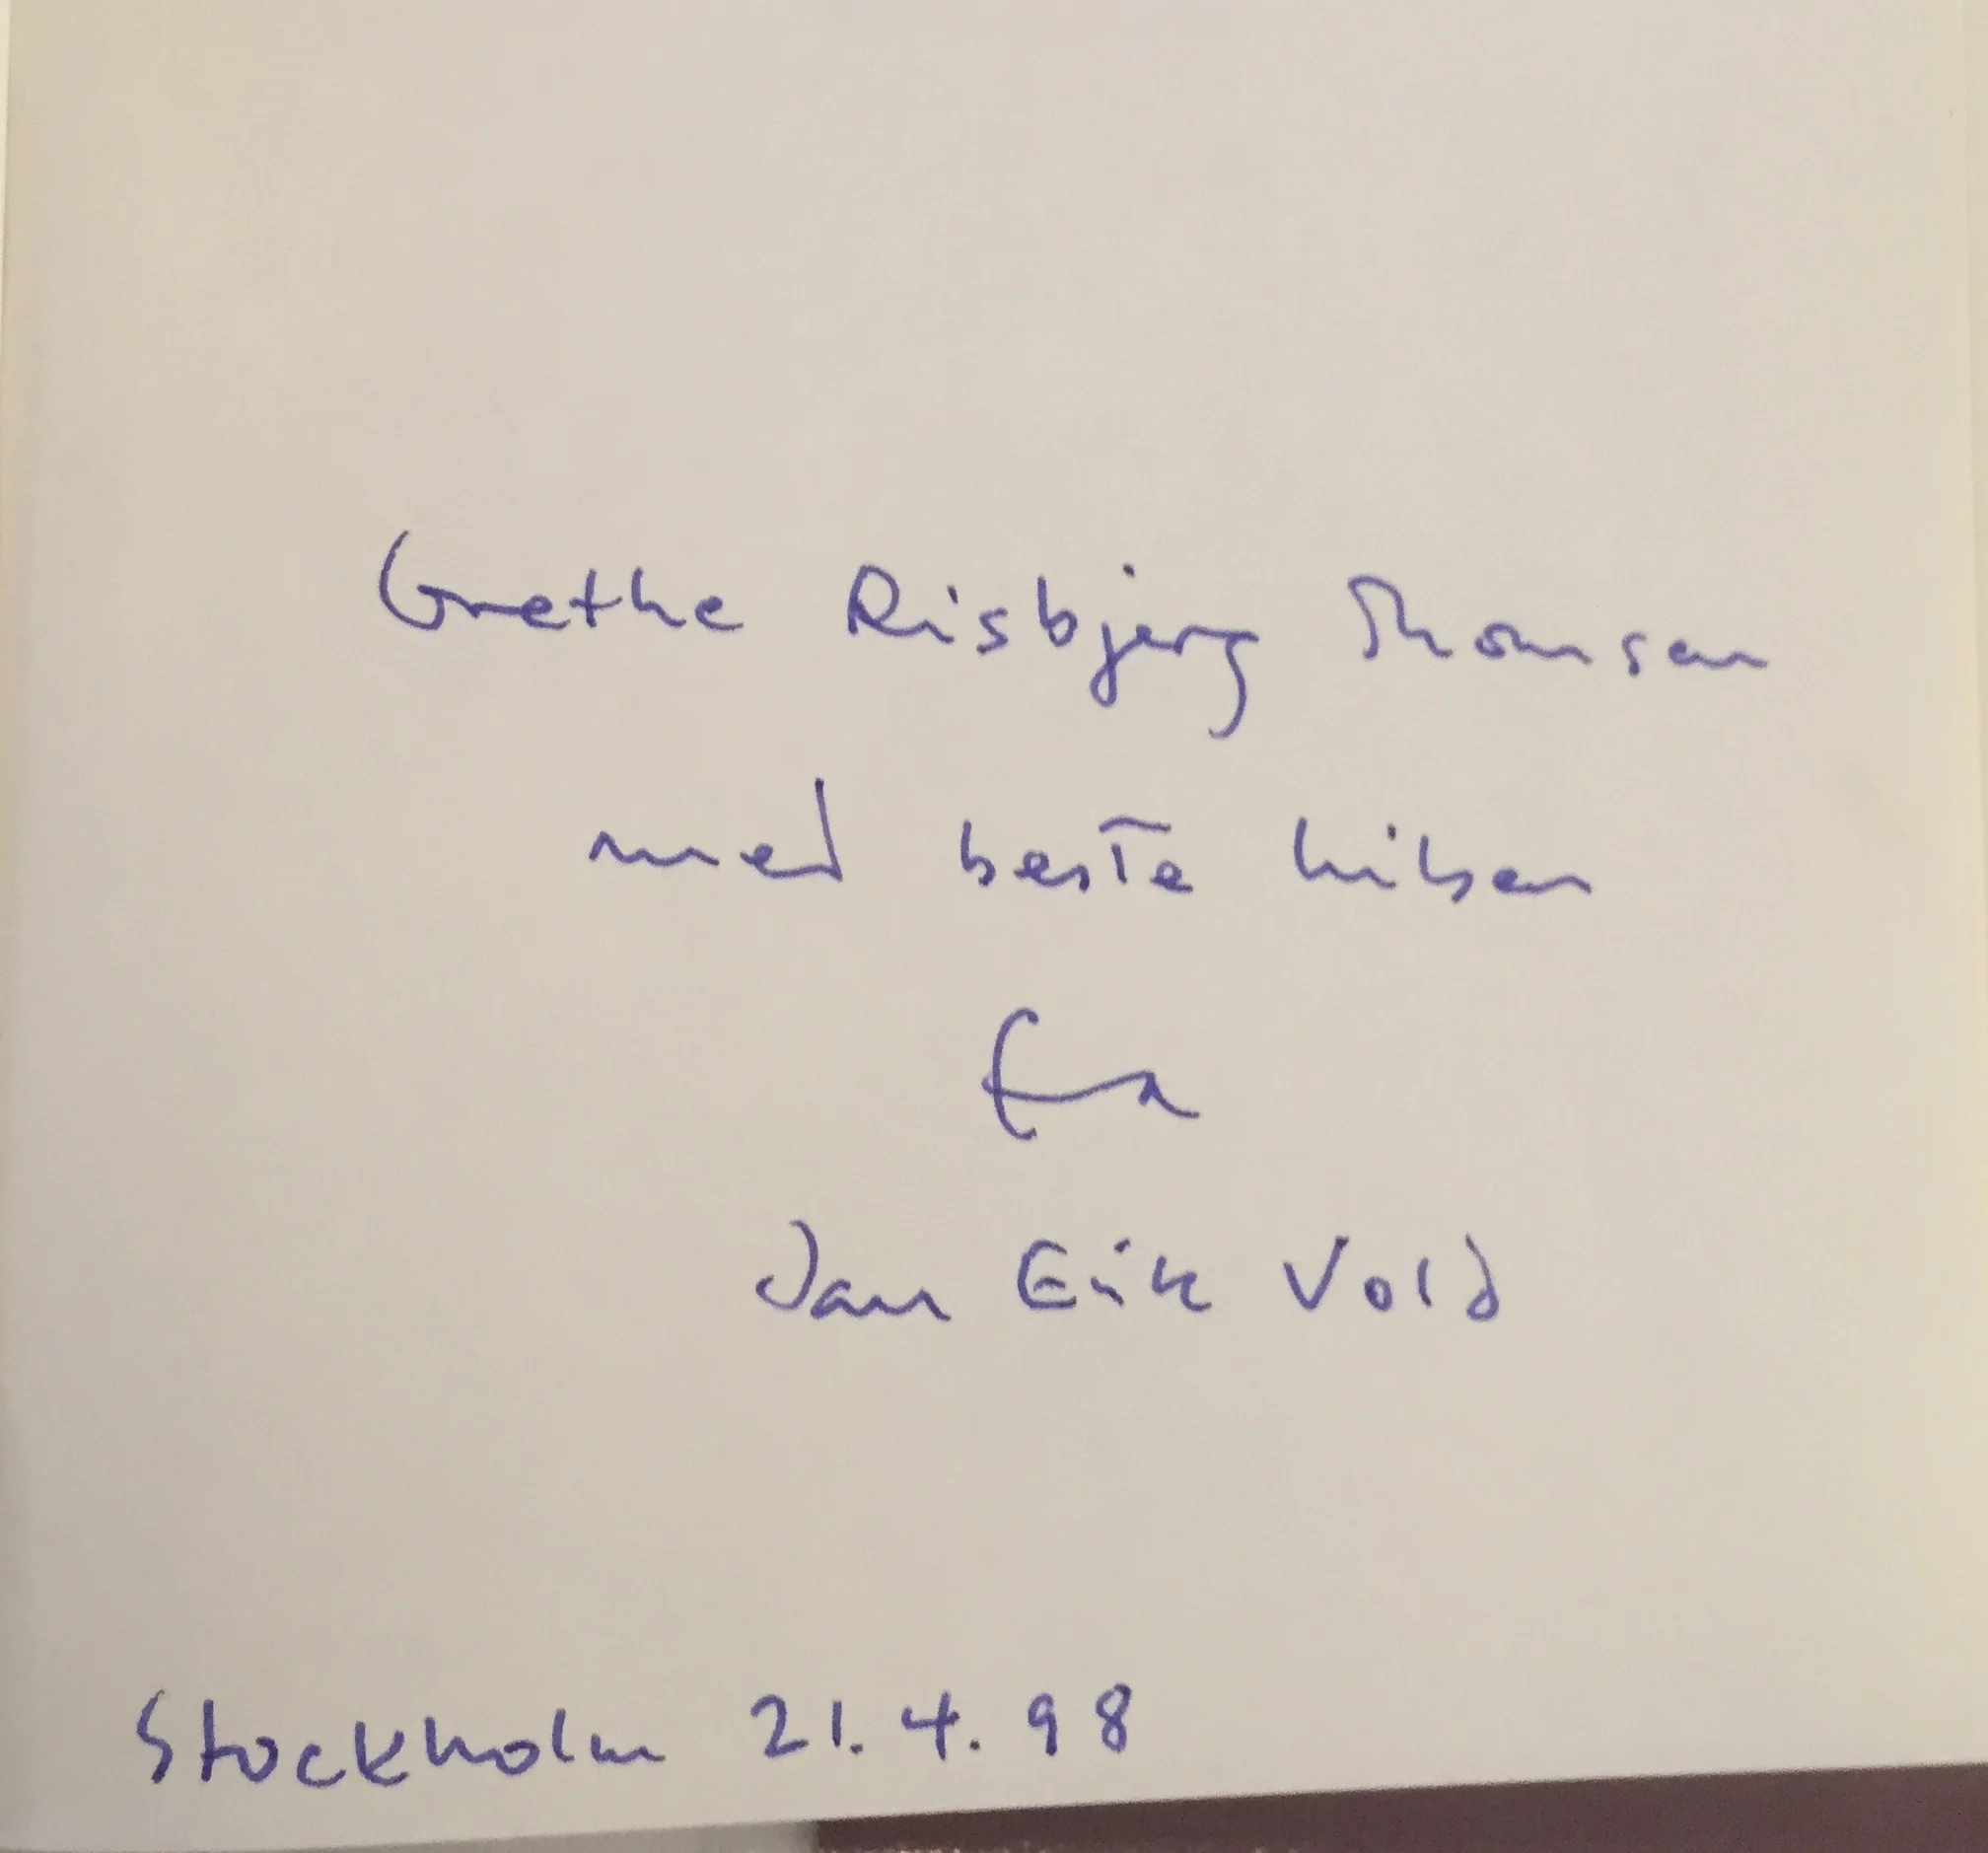 Grethe Risbjerg Thomsen
med beste hilsen
fra
Jan Erik Vold
Stockholm 21.4.98